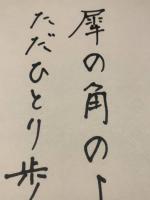 犀の角の
ただひとり歩